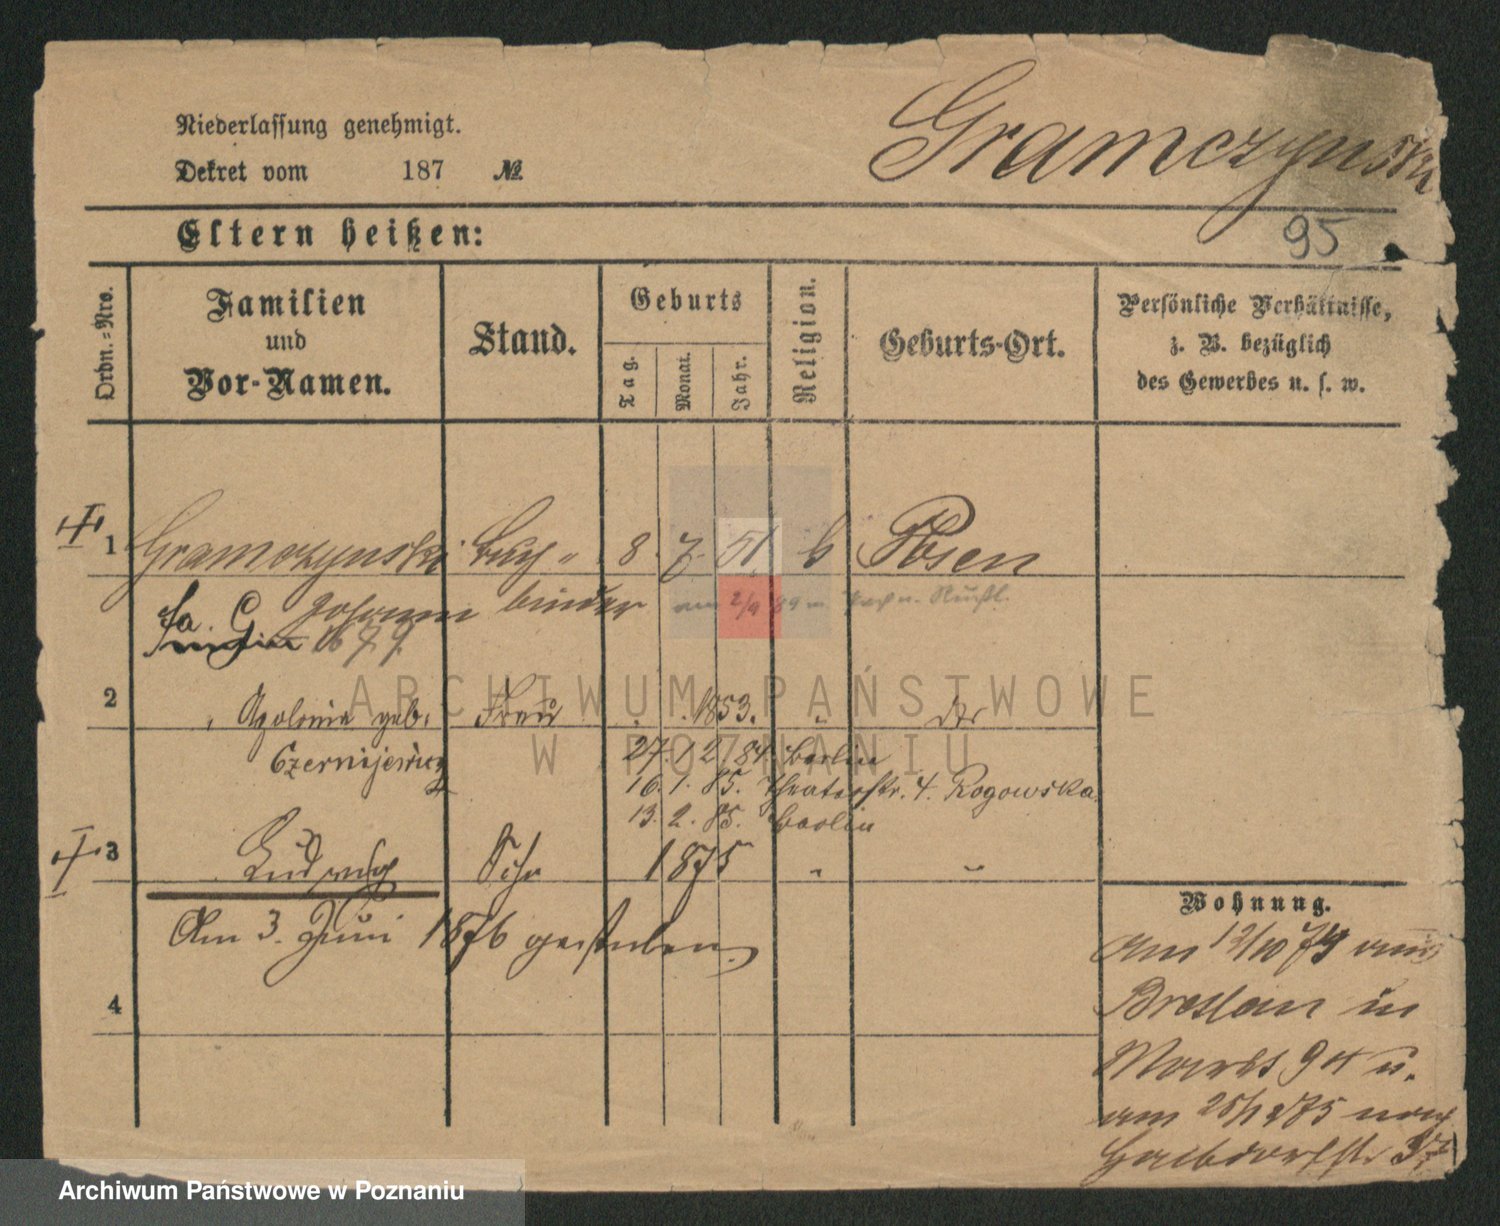 Niederlassung genehmigt.
Dekret vom 187 №
Gramczynski
95
Eltern heißen:
Ordn.-Nro.
Familien
und
Vor-Namen.
Stand.
Geburts
Tag.
Monat.
Jahr.
Religion.
Geburts-Ort.
Persönliche Verhältnisse,
z. B. bezüglich
des Gewerbes u. s. w.
1 Gramczynski Buch- 8. 7. 51 k Posen
Johann binder
am 2/9 89 n.
2 Apolonia geb. Frau 1853. " do
Czernijewicz
27. 12. 84 Berlin
16. 1. 85. Theaterstr. 4. Rogowska
13. 2. 85. Berlin
3 Ludwig Sohn 1875 " "
Am 3. Juni 1876 gestorben.
4
Wohnung.
Am 12/10 74 aus
Breslau in
Markt 94 u.
am 25/11 75 nach
ARCHIWUM PAŃSTWOWE
W POZNANIU
Archiwum Państwowe w Poznaniu